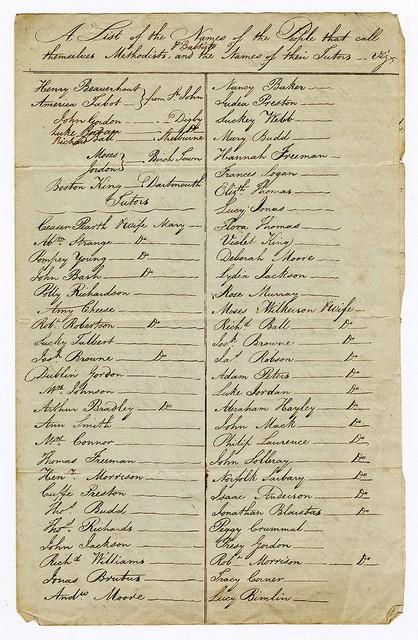 A List of the Names of the People that call
& Baptists
themselves Methodists and the Names of their Tutors Viz
Henry Beauerhout
America Talbot } from St John
John Gordon — Digby
Luke Jordan
Richard Ball Shelburne
Moses
Jordon } Birch Town
Boston King — Dartmouth
Tutors
Ceasar Perth & Wife Mary
Abm Strange Do
Pompey Young Do
John Bash Do
Polly Richardson
Amy Cheese
Robt Robertson Do
Lucky Talbert
Josh Browne Do
Dublin Gordon
Wm Johnson
Arthur Bradley Do
Ann Smith
Connor
Thomas Freeman
Heny Morrison
Cuffe Preston
Thos Budd
Thos Richards
John Jackson
Richd Williams
Jonas Brutus
Andw Moore
Nancy Baker
Judea Preston
Suckey Webb
Mary Budd
Hannah Freeman
Frances Logan
Elizth Thomas
Lucy Jonas
Flora Thomas
Violet King
Deborah Moore
Lydia Jackson
Rose Murray
Moses Wilkerson & Wife
Richd Ball Do
Josh Browne Do
Jas Robson Do
Adam Peters Do
Luke Jordan Do
Abraham Hayley Do
John Mack Do
Philip Laurence Do
John Do
Norfolk Do
Isaac Anderson Do
Jonathan Do
Peggy Crummal
Gordon
Robt Morrison Do
Tracy Corner
Lucy Bimlin